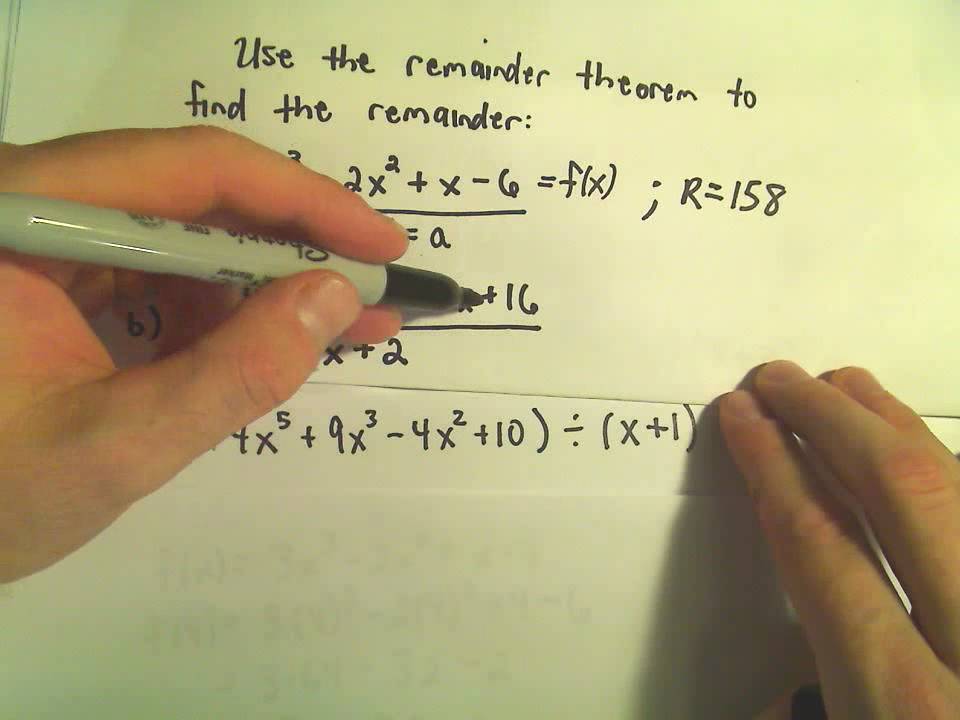 Use the remainder theorem to
find the remainder:
3 2x² + x - 6 = f(x) ; R=158
= a
b) x + 16
x + 2
4x⁵ + 9x³ - 4x² + 10) ÷ (x+1)
Sharpie